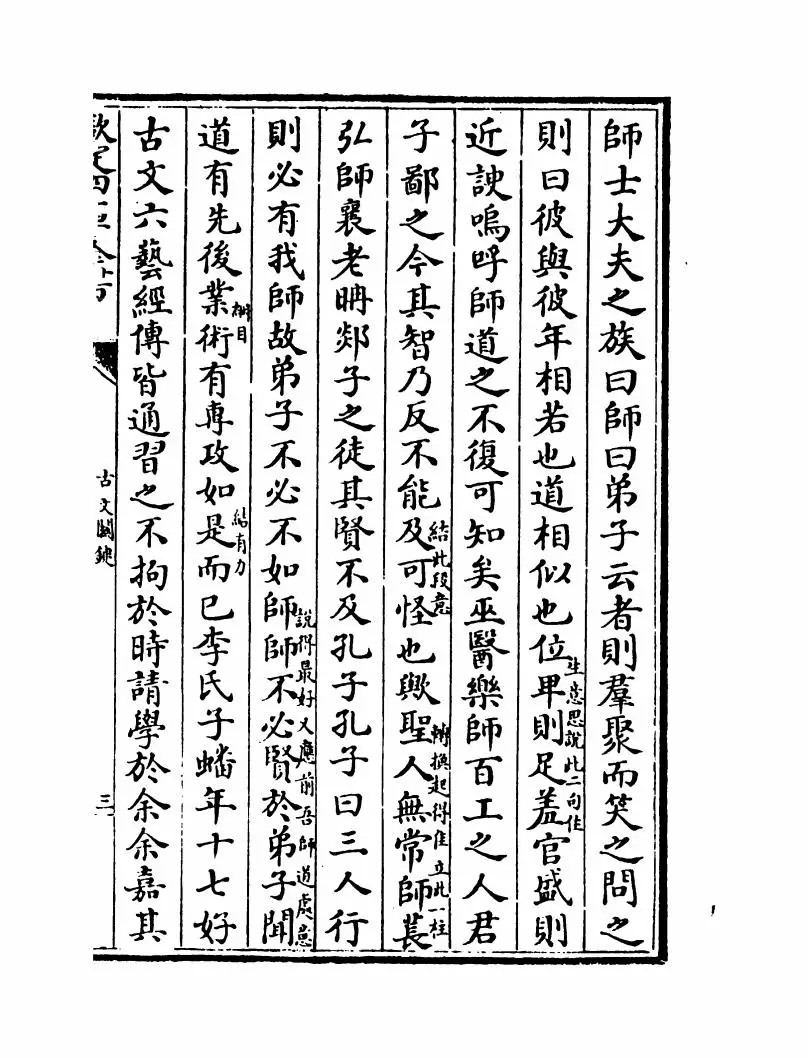 師士大夫之族曰師曰弟子云者則羣聚而笑之問之
則曰彼與彼年相若也道相似也位卑則足羞官盛則
生意思說此二句佳
近諛嗚呼師道之不復可知矣巫醫樂師百工之人君
子鄙之今其智乃反不能及可怪也歟聖人無常師萇
結此段意
轉換起得佳立此一柱
弘師襄老聃郯子之徒其賢不及孔子孔子曰三人行
則必有我師故弟子不必不如師師不必賢於弟子聞
說得最好又應前吾師道處意
道有先後業術有專攻如是而已李氏子蟠年十七好
綱目
結有力
古文六藝經傳皆通習之不拘於時請學於余余嘉其
古文關鍵
三